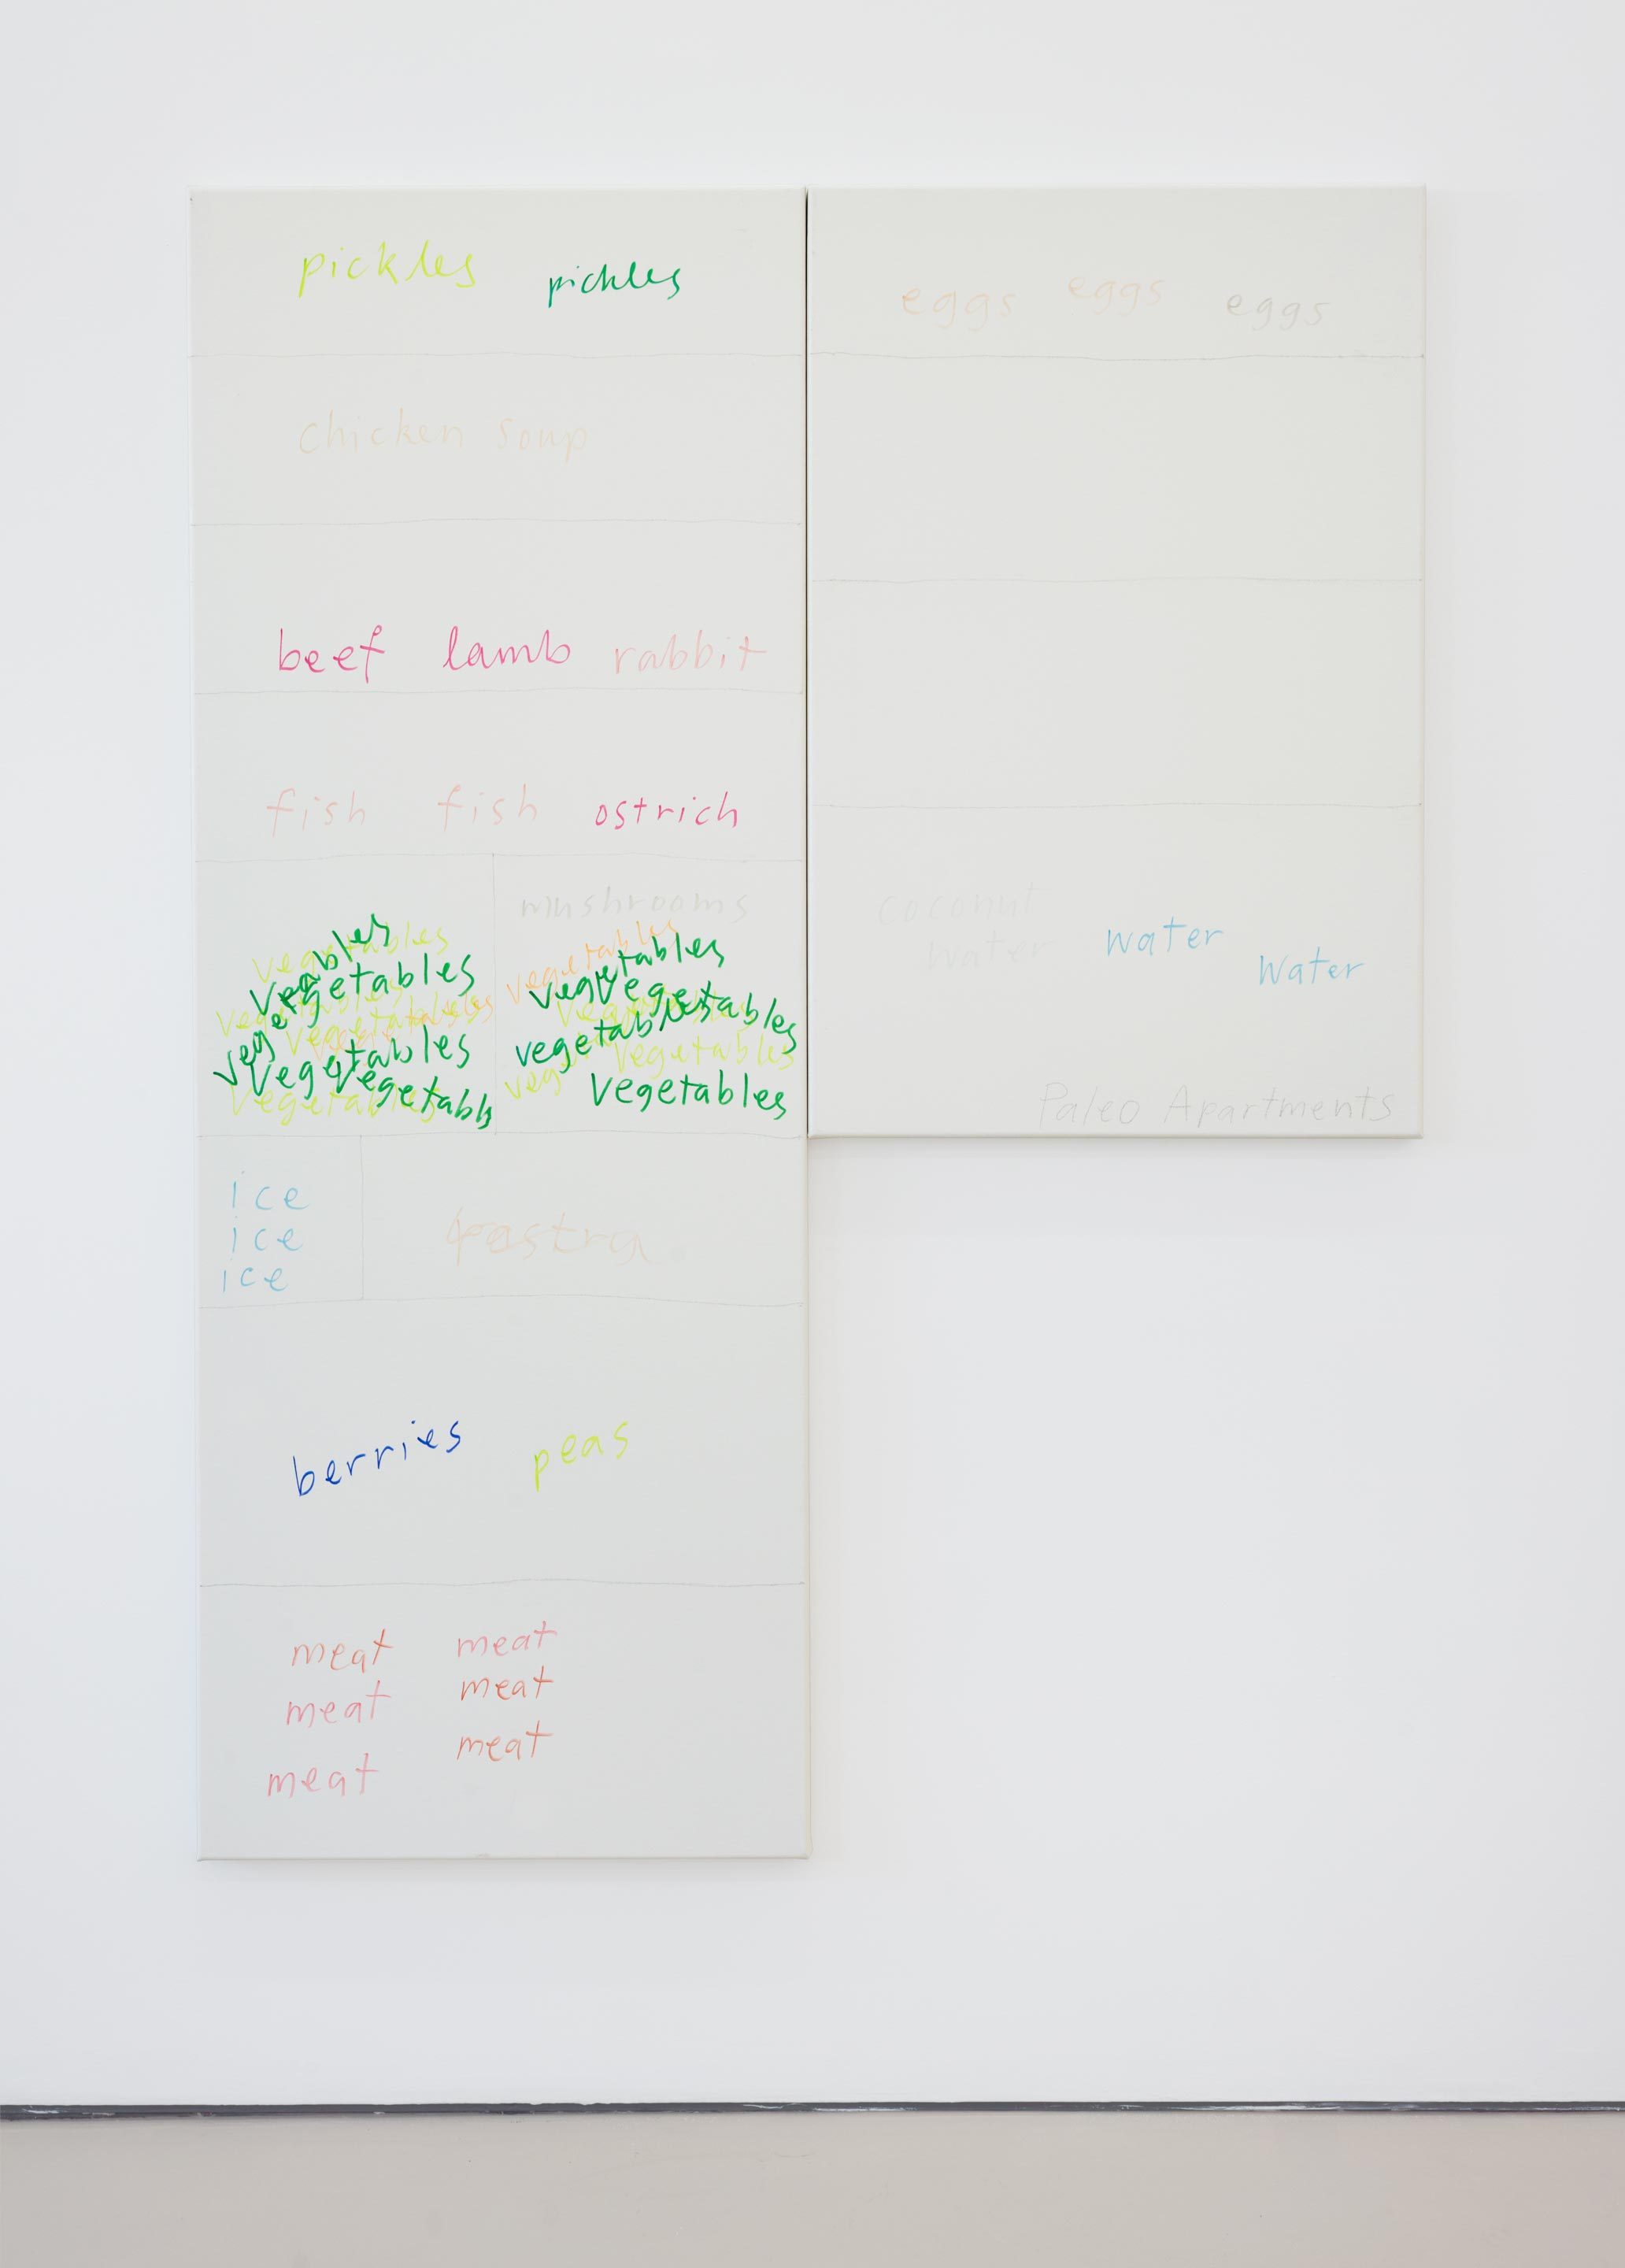 pickles pickles
chicken soup
beef lamb rabbit
fish fish ostrich
vegetables
vegetables
vegetables
vegetables
vegetables
vegetabls
vegetables
mushrooms
vegetables
vegetables
vegetables
vegetables
vegetables
vegetables
ice
ice
ice
berries peas
meat meat
meat meat
meat meat
eggs eggs eggs
coconut water water
water
Paleo Apartments